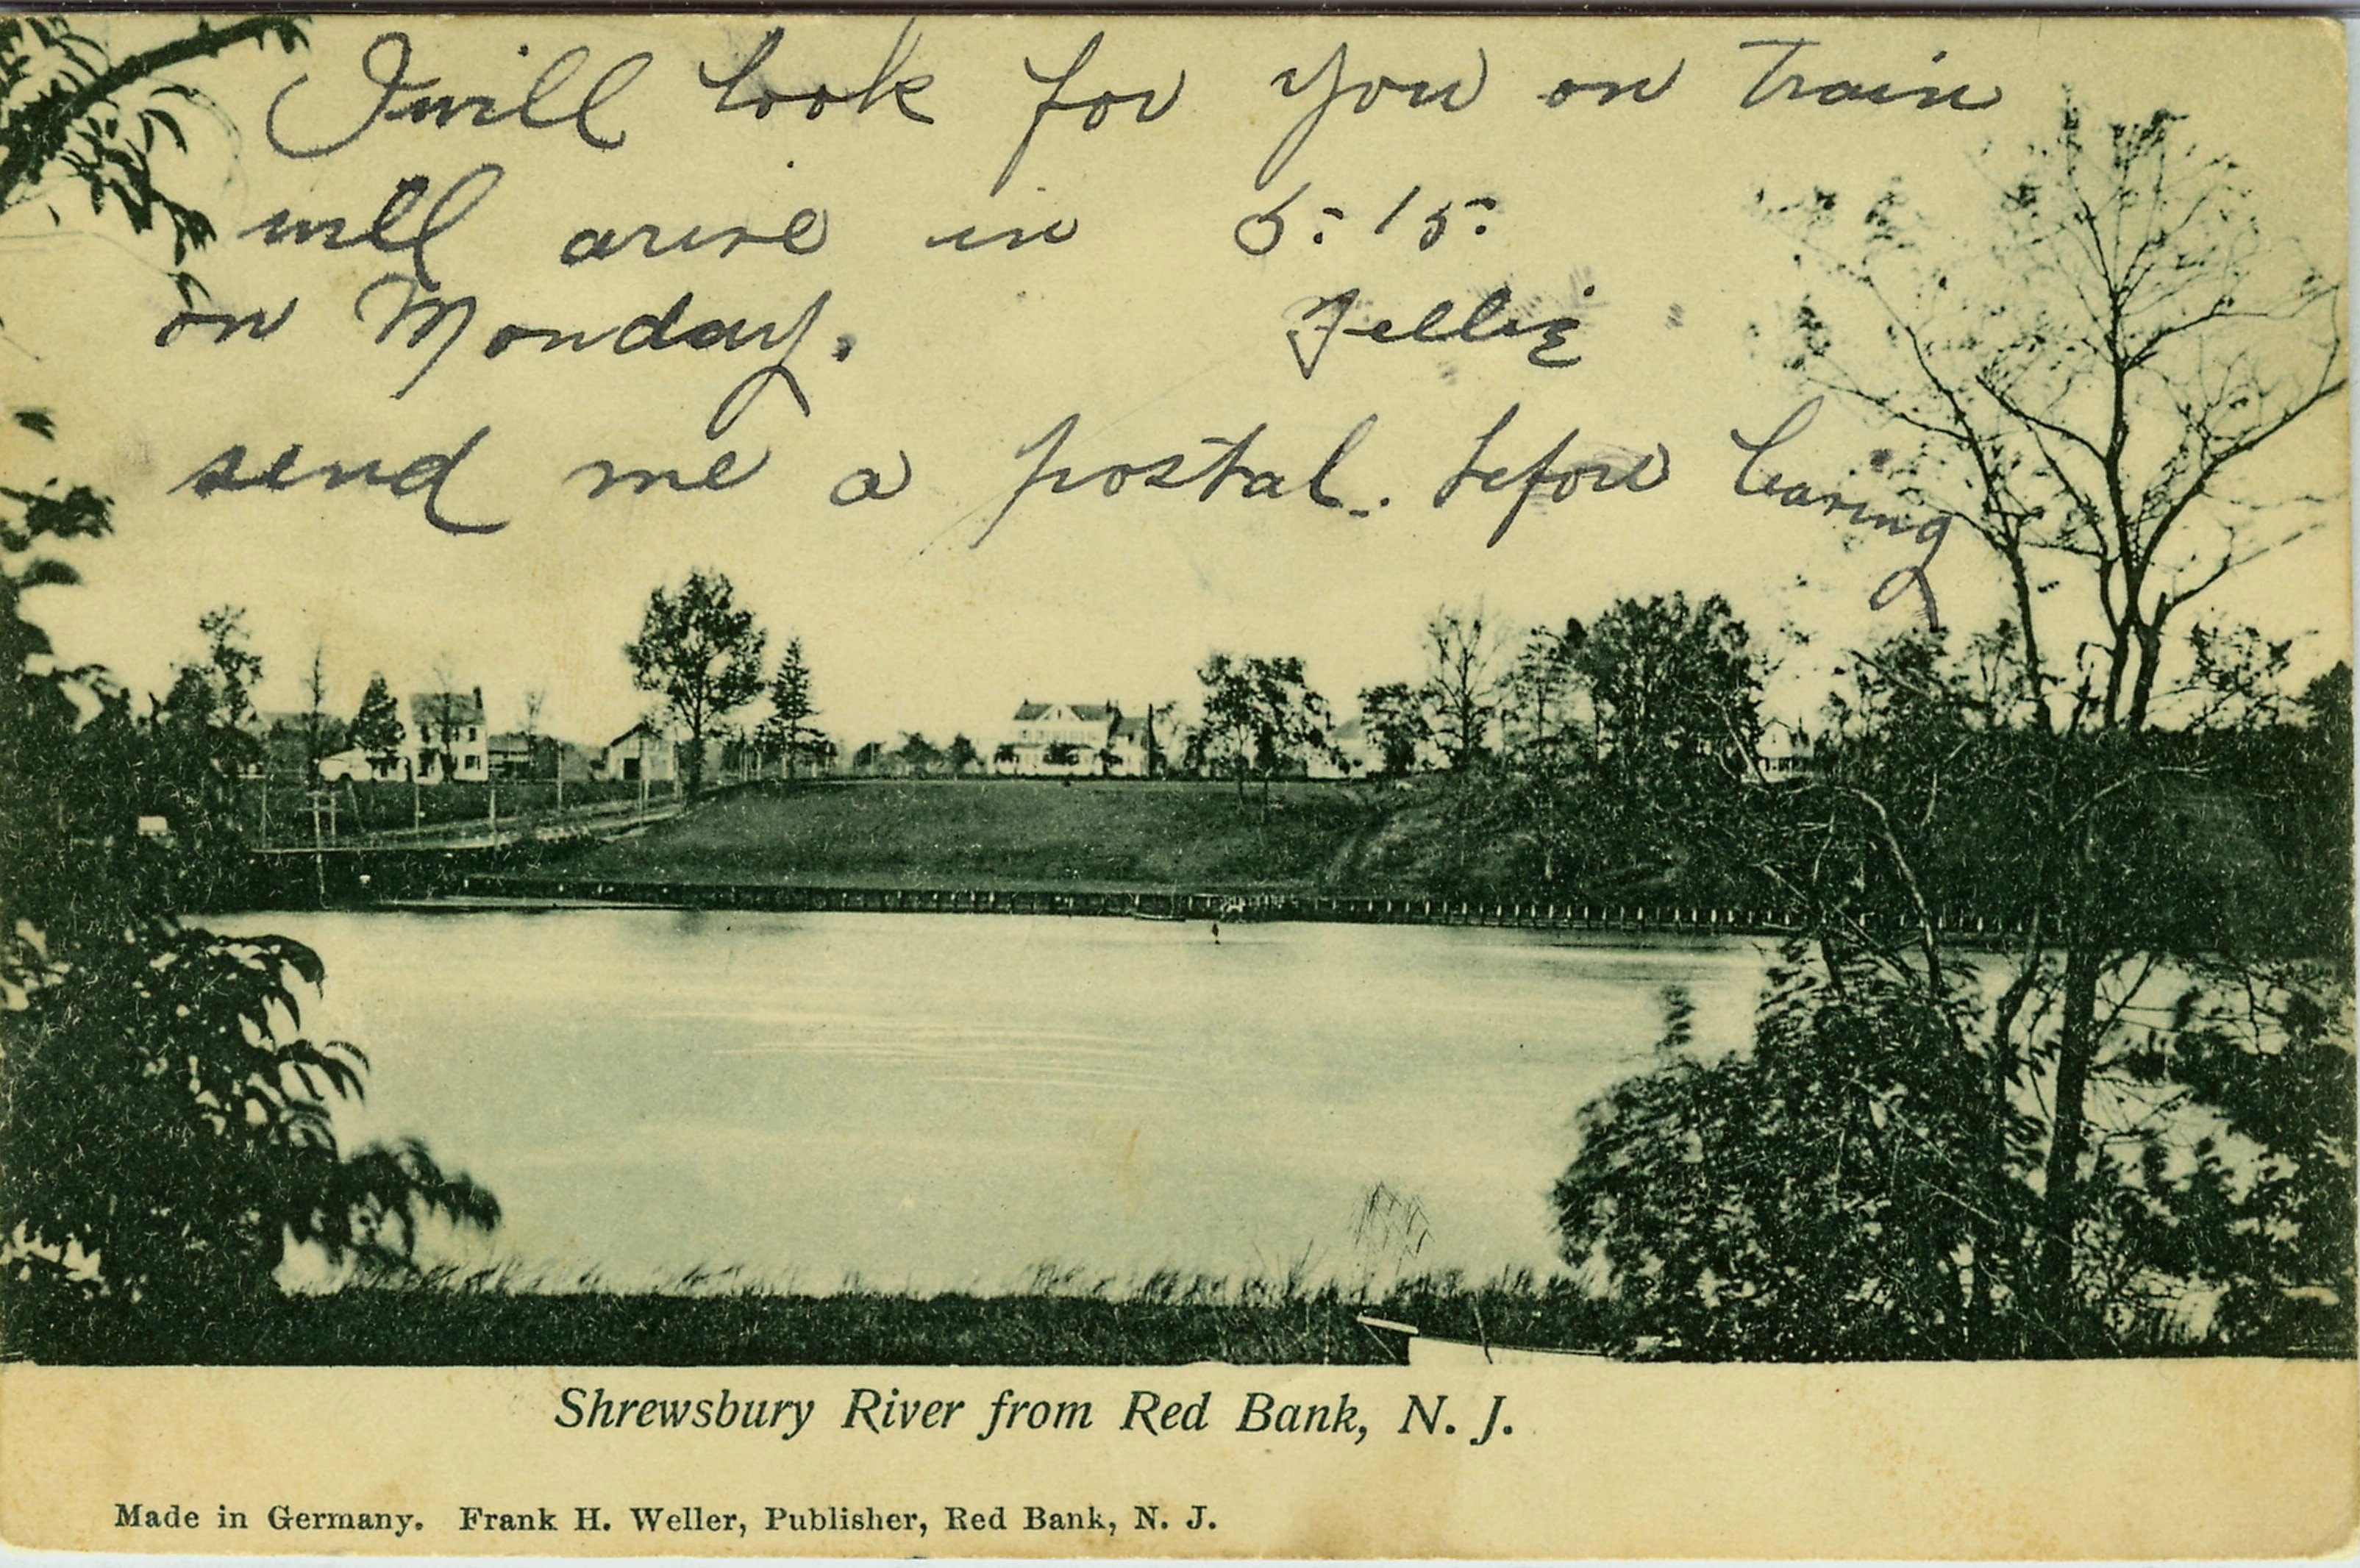 I will look for you on train
will arive in 5:15.
on Monday. Nellie
send me a postal. before leaving
Shrewsbury River from Red Bank, N. J.
Made in Germany. Frank H. Weller, Publisher, Red Bank, N. J.